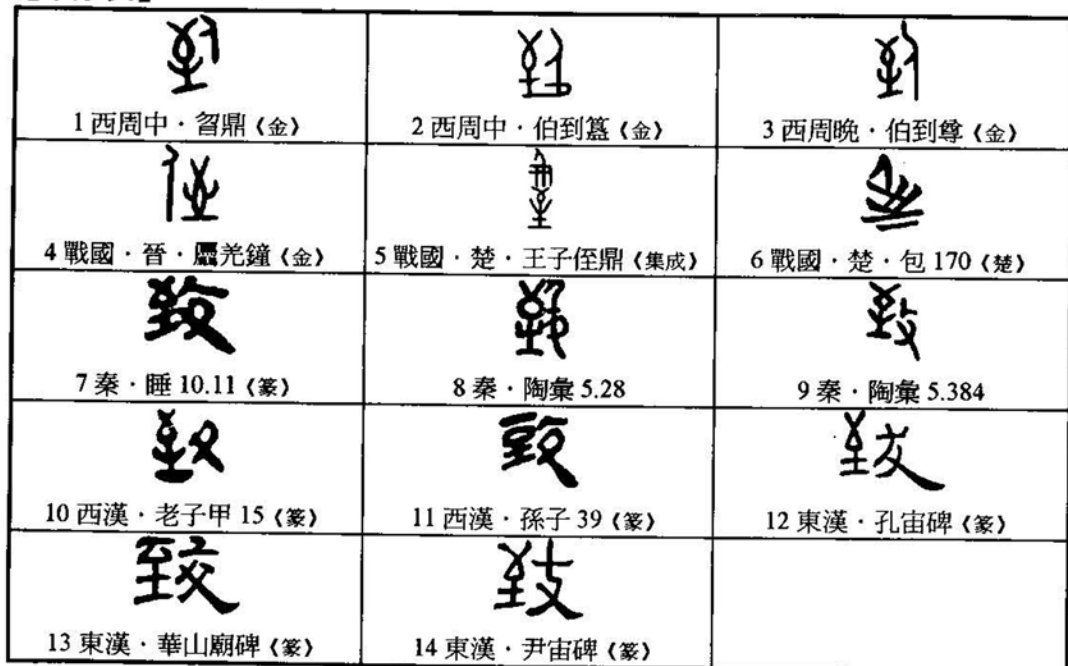 1 西周中・曶鼎《金》
2 西周中・伯到簋《金》
3 西周晚・伯到尊《金》
4 戰國・晉・羌鐘《金》
5 戰國・楚・王子侄鼎《集成》
6 戰國・楚・包 170《楚》
7 秦・睡 10.11《篆》
8 秦・陶彙 5.28
9 秦・陶彙 5.384
10 西漢・老子甲 15《篆》
11 西漢・孫子 39《篆》
12 東漢・孔宙碑《篆》
13 東漢・華山廟碑《篆》
14 東漢・尹宙碑《篆》